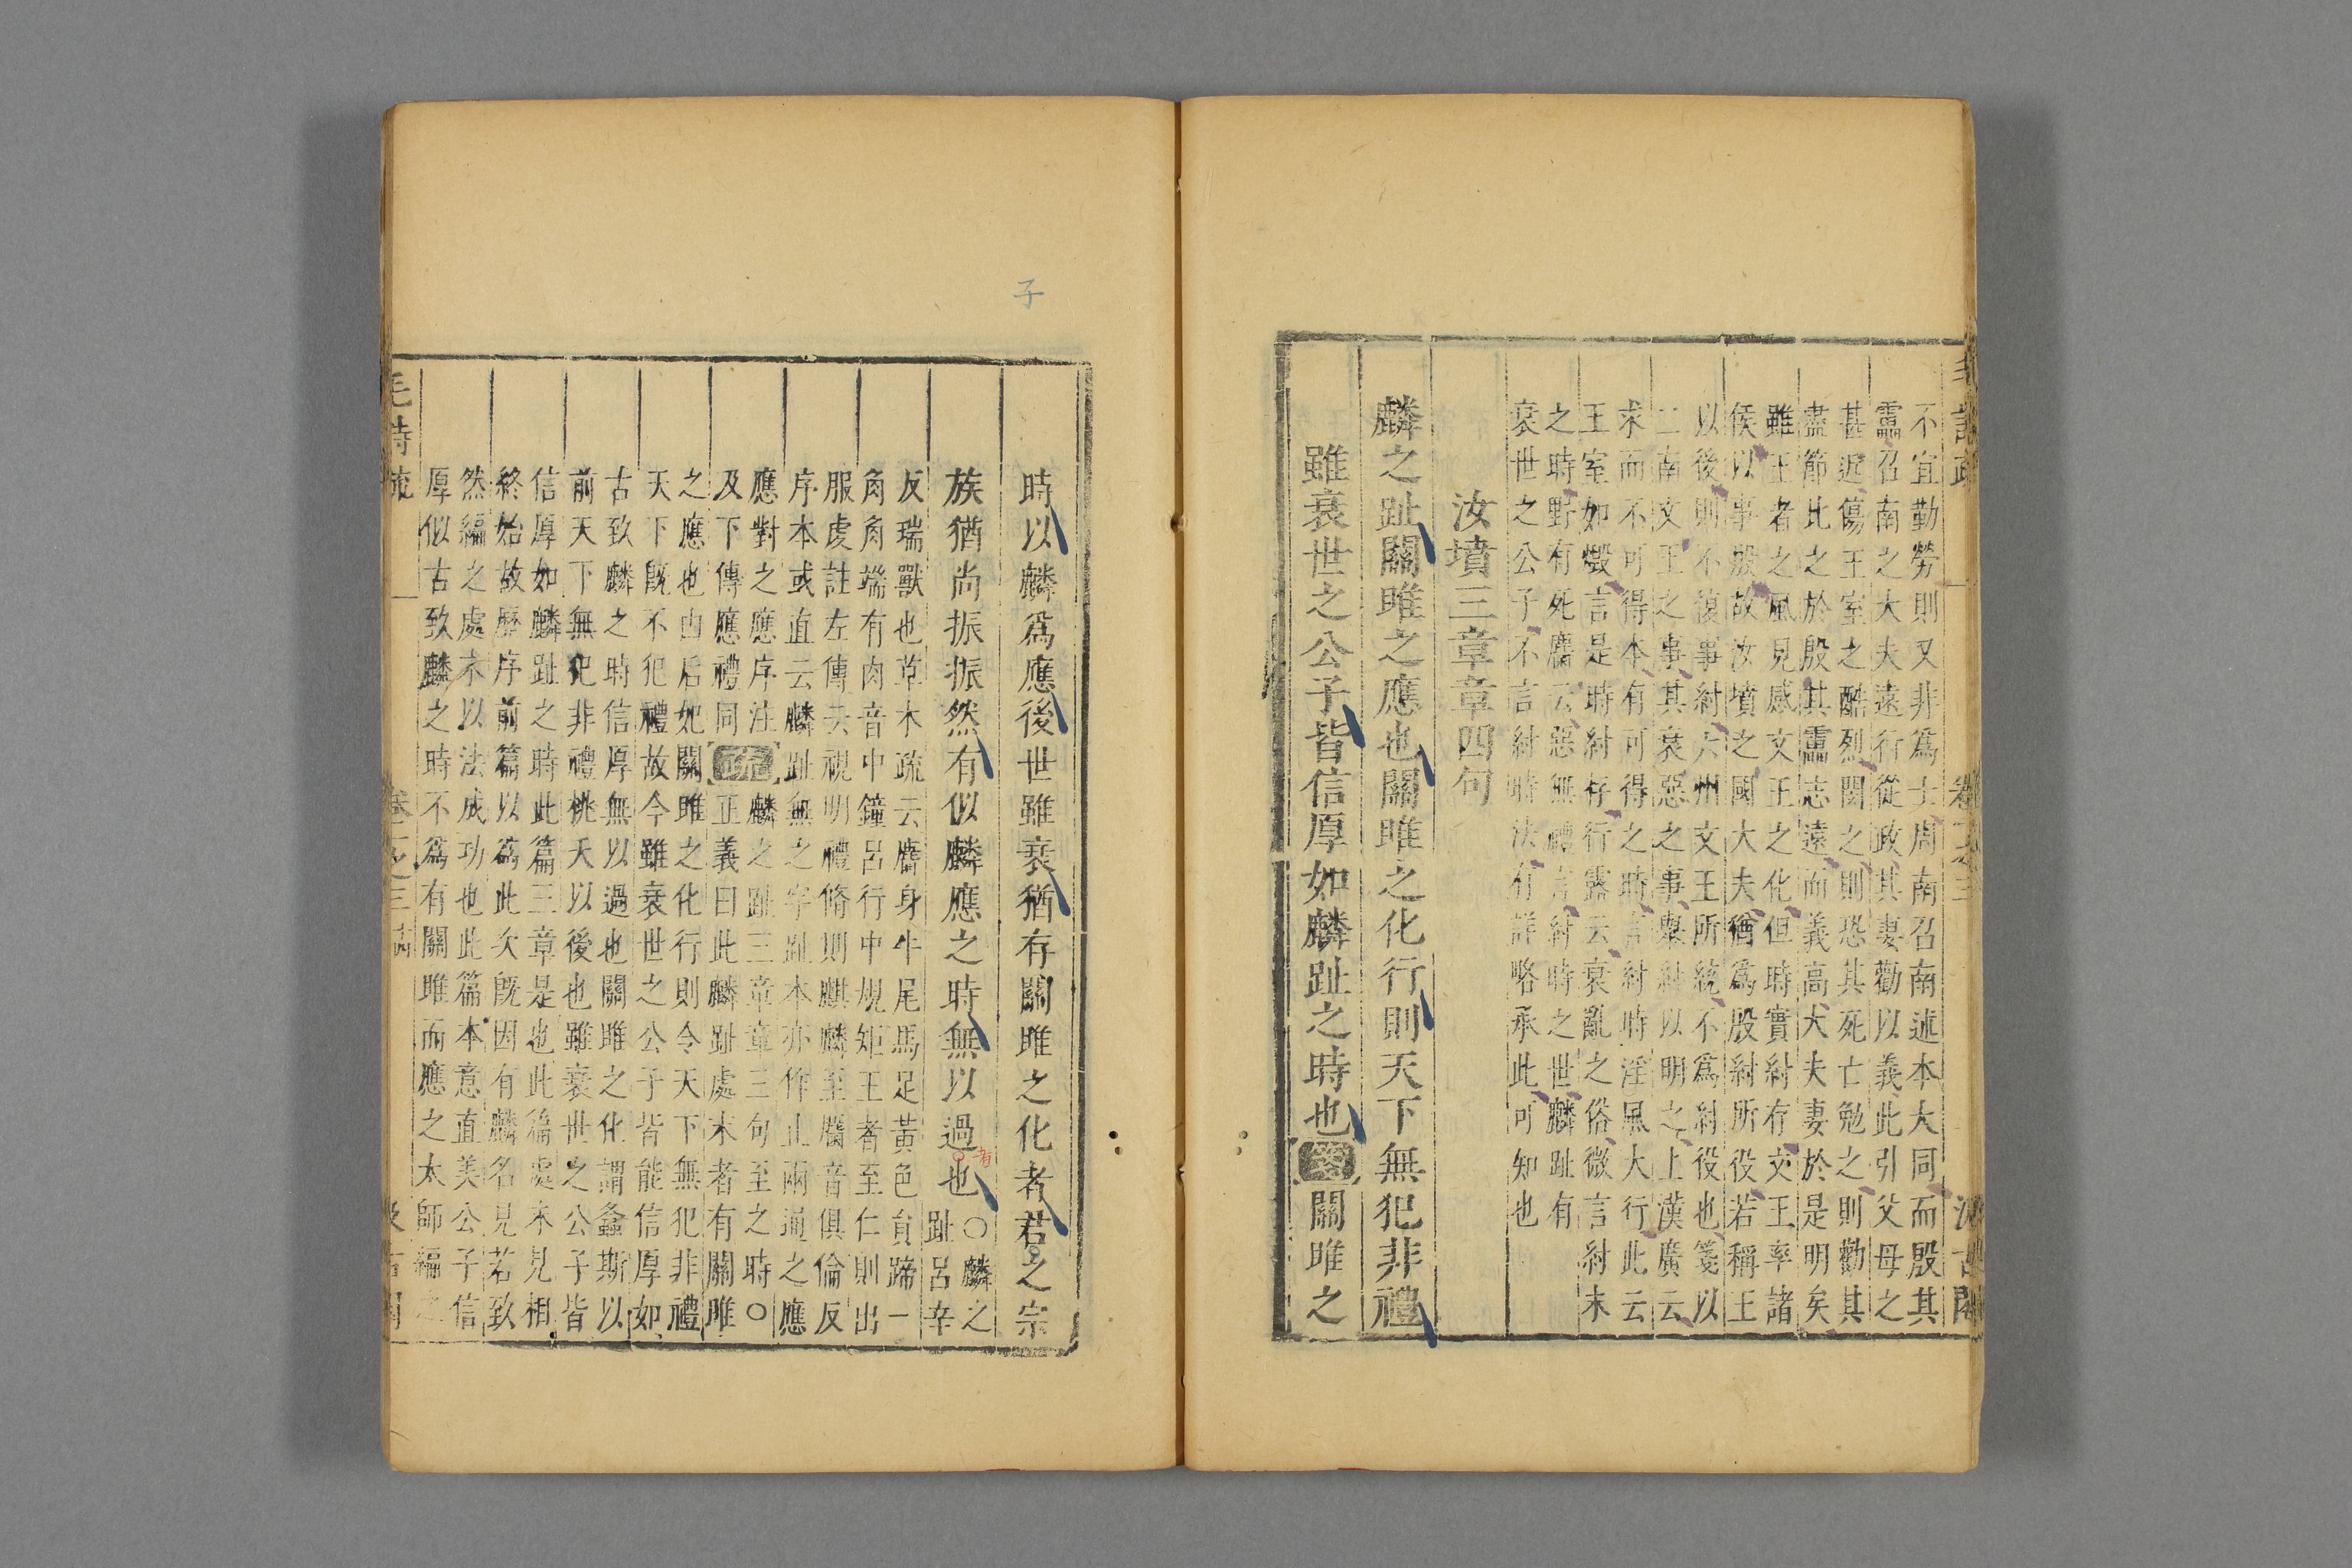 不宜勤勞則又非爲士周南召南述本大同而殷其
靁召南之大夫遠行從政其妻勸以義此引父母之
甚近傷王室之酷烈閔之則恐其死亡勉之則勸其
盡節比之於殷其靁志遠而義高大夫妻於是明矣
雖王者之風見感文王之化但時實紂存文王率諸
侯以事殷故汝墳之國大夫猶爲殷紂所役若稱王
以後則不復事紂六州文王所統不爲紂役也箋以
二南文王之事其衰惡之事舉紂以明之上漢廣云
求而不可得本有可得之時言紂時淫風大行此云
王室如燬言是時紂存行露云衰亂之俗微言紂末
之時野有死麕云惡無禮言紂時之世麟趾有
衰世之公子不言紂時法有詳略承此可知也
汝墳三章章四句
麟之趾關雎之應也關雎之化行則天下無犯非禮
雖衰世之公子皆信厚如麟趾之時也箋關雎之
子
時以麟爲應後世雖衰猶存關雎之化者君之宗
族猶尚振振然有似麟應之時無以過也○麟之
者
趾呂辛
反瑞獸也草木疏云麕身牛尾馬足黃色員蹄一
角角端有肉音中鐘呂行中規矩王者至仁則出
服虔註左傳云視明禮脩則麒麟至麕音俱倫反
序本或直云麟趾無之字趾本亦作止兩通之應
應對之應序注麟之趾三章章三句至之時○
及下傳應禮同疏正義曰此麟趾處末者有關雎
之應也由后妃關雎之化行則令天下無犯非禮
天下旣不犯禮故今雖衰世之公子皆能信厚如
古致麟之時信厚無以過也關雎之化謂螽斯以
前天下無犯非禮桃夭以後也雖衰世之公子皆
信厚如麟趾之時此篇三章是也此篇處末見相
終始故歷序前篇以爲此次旣因有麟名見若致
然編之處末以法成功也此篇本意直美公子信
厚似古致麟之時不爲有關雎而應之太師編之
毛詩疏 卷一之三